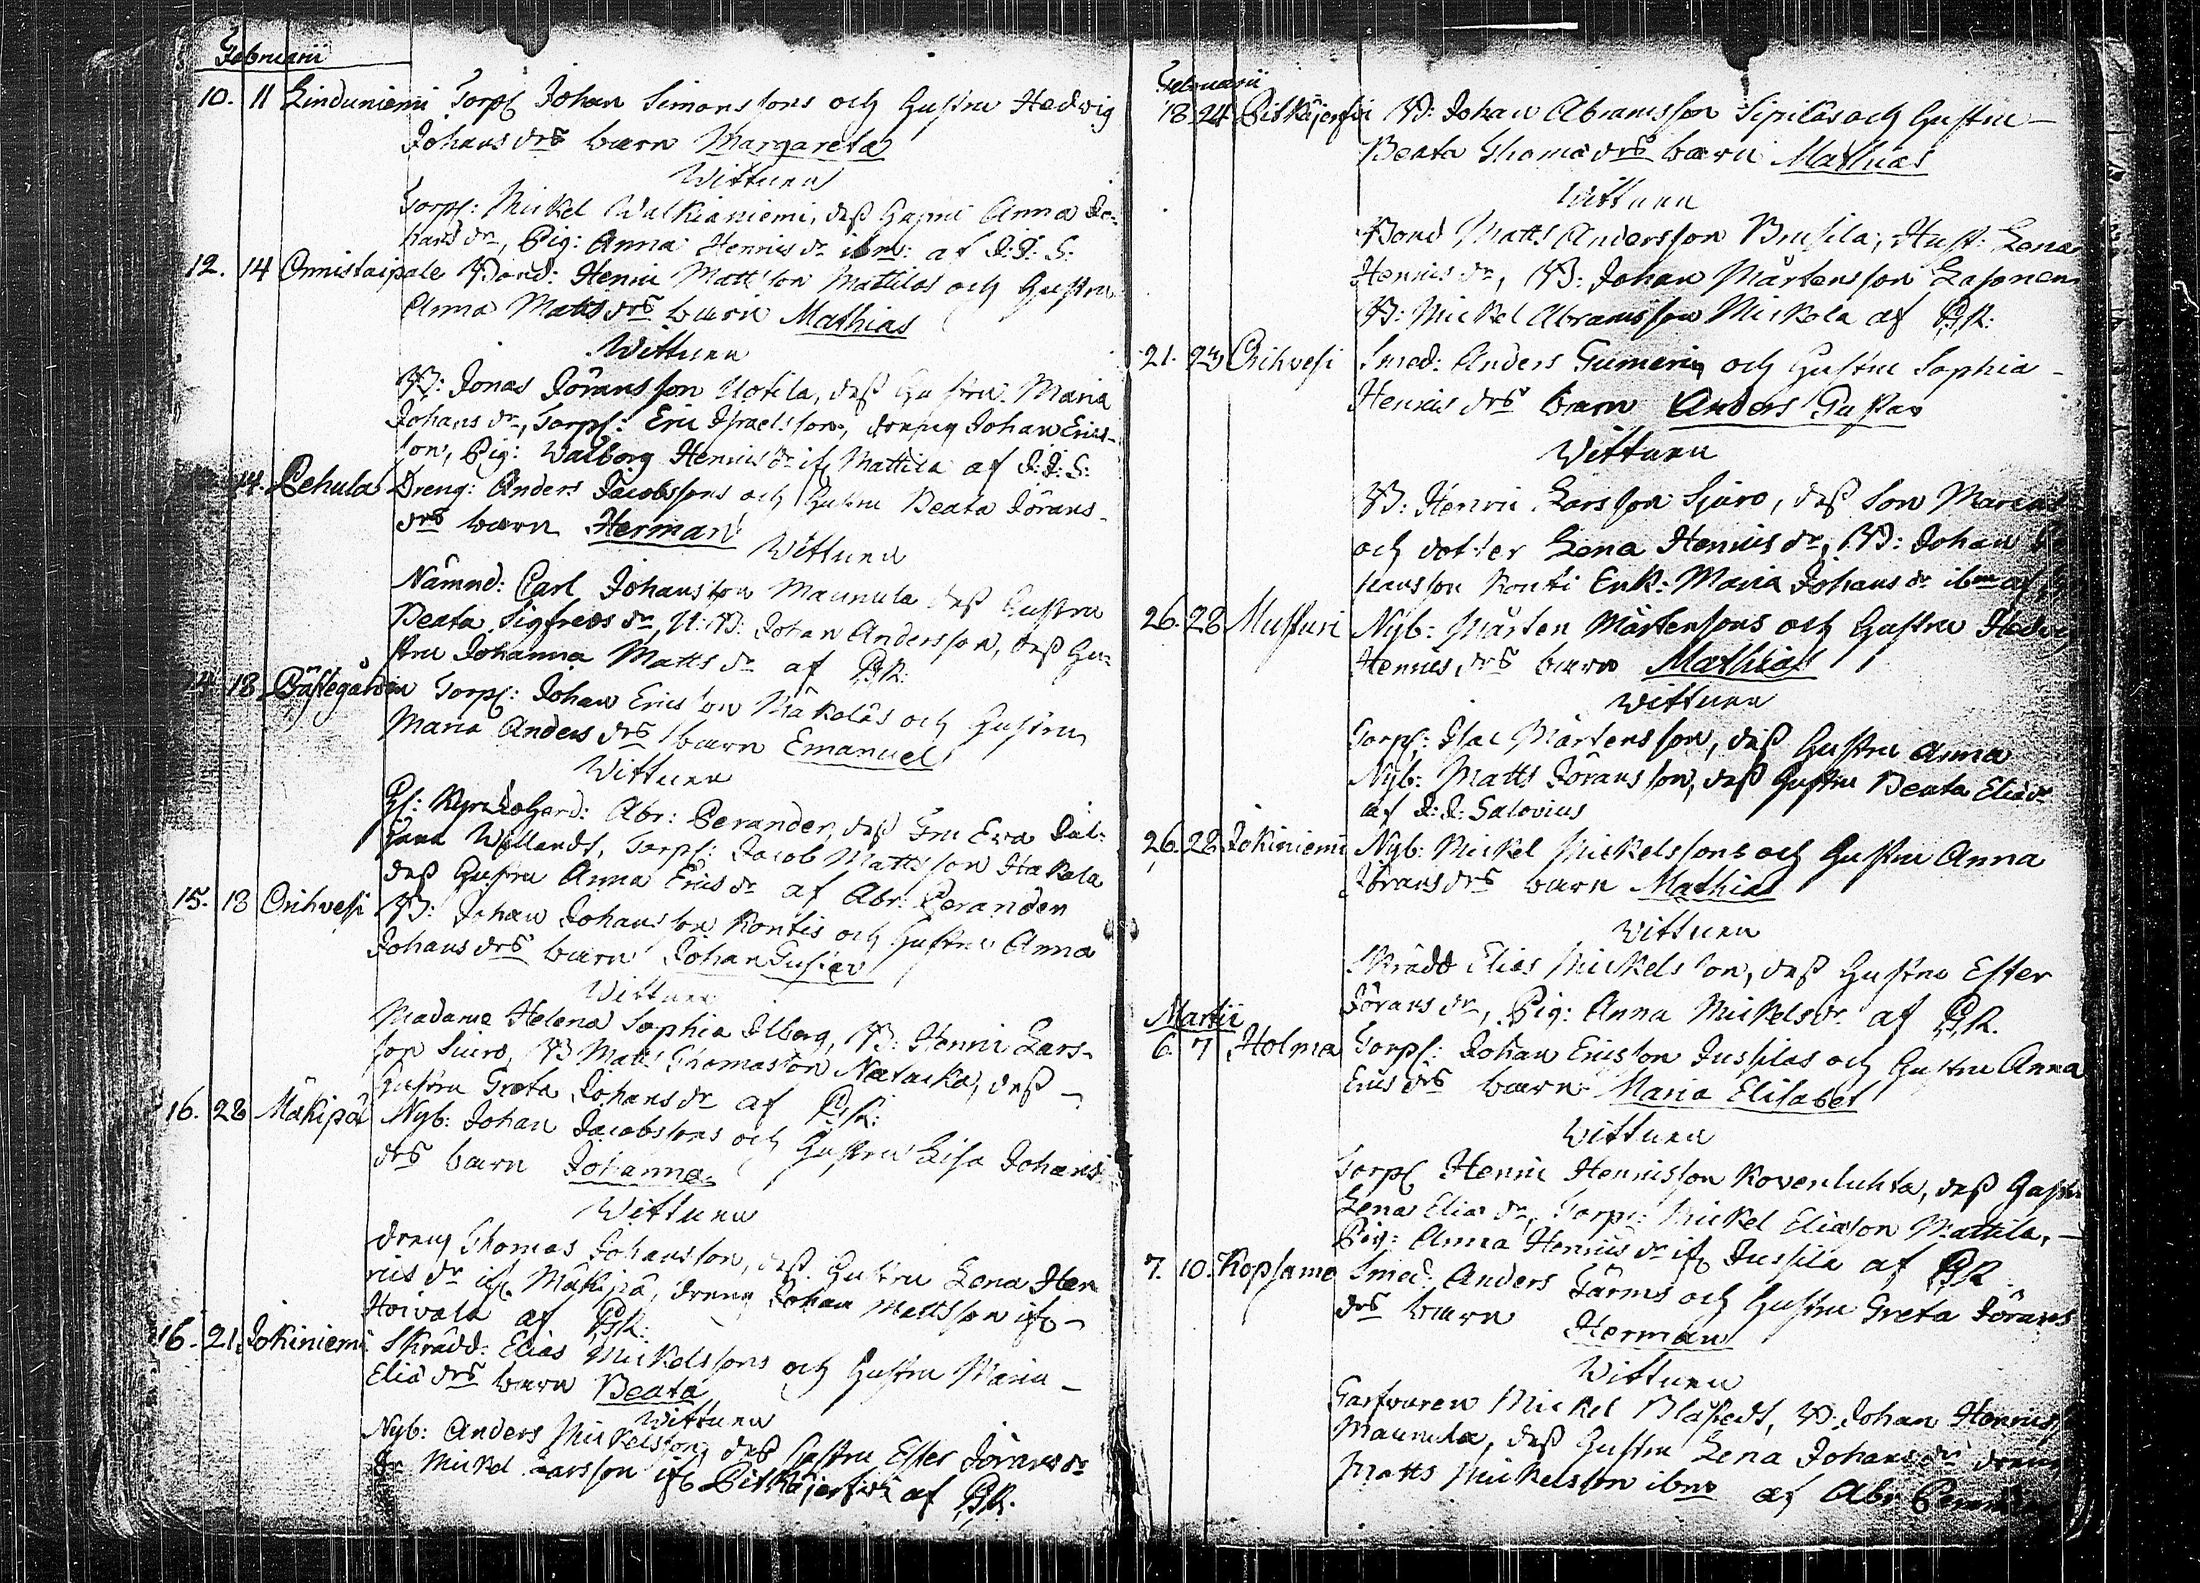 Februarii
10. 11 Linduniemi Torp: Johan Simonssons och Hustru Hedwig
Johansdrs barn Margareta
Wittnen
Torp: Mickel Walkianiemi, deß Hustru Anna Jo-
hansdr, Pig: Anna Henricsdr ibm: af J: J: S:
12. 14 Onnistaipale Bond: Henric Mattsson Mattilas och Hustru
Anna Mattsdrs barn Mathias
Wittnen
B: Jonas Jöransson Uotila, deß Hustru Maria
Johansdr, Torp: Eric Israelsson, dreng Johan Erics-
son, Pig: Walborg Henricsdr if. Mattila af J: J: S:
14. Pehula Dreng: Anders Jacobssons och Hustru Beata Jörans-
drs barn Herman
Wittnen
Nämnd: Carl Johansson Maunula deß Hustru
Beata Sigfredsdr, U: B: Johan Andersson, deß Hu-
stru Johanna Mattsdr af P: R:
14 18 Prästegården Torp: Johan Ericsson Mäkeläs och Hustru
Maria Andersdrs barn Emanuel
Wittnen
H: Kyrkoherd: Abr: Perander, deß Fru Eva Jul:
Torp: Jacob Mattsson Hakola
deß Hustru Anna Ericsdr af Abr: Perander
15. 18 Orihvesi B: Johan Johansson Kontis och Hustru Anna
Johansdrs barn Johan Gustav
Wittnen
Madame Helena Sophia Ilberg, B: Henric Lars-
son Siuro, B Matts Thomasson deß
Hustru Greta Johansdr af P: R:
16. 28 Mäkipä Nyb: Johan Jacobssons och Hustru Lisa Johans
drs barn Johanna
Wittnen
dreng Thomas Johansson, deß Hustru Lena Hen
ricsdr if. Mäkipä, dreng Johan Mattsson if.
Hoivala af P: R:
16. 21. Jokiniemi Skrädd: Elias Mickelssons och Hustru Maria
Eliædrs barn Beata
Wittnen
Nyb: Anders Mickelsson, deß Hustru Ester Jöransdr
Mickel Larsson if. Pitkäjerfvi af P: R:
Februarii
18. 24 Pitkäjerfvi B: Johan Abramsson Sipiläs och Hustru
Beata Thomædrs barn Mathias
Wittnen
Bond Matts Andersson Brusila, Hust: Lena
Henricsdr, B: Johan Mårtensson Lasonen
B: Mickel Abramsson Mickola af P: R:
21. 23 Orihvesi Smed: Anders Gumerin och Hustru Sophia
Henricsdrs barn Anders Gustav
Wittnen
B: Henric Larsson Sjuro, deß Son
och dotter Lena Henricsdr, B: Johan Jo
hansson Konti Enk: Maria Johansdr ibm af
26. 28 Mussuri Nyb: Mårten Mårtensons och Hustru Hedvig
Henricsdrs barn Mathias
Wittnen
Torp: Isac Mårtensson, deß Hustru Anna
Nyb: Matts Jöransson, deß Hustru Beata Eliædr
af J: J: Salovius
26. 28. Jokiniemi Nyb: Mickel Mickelssons och Hustru Anna
Jöransdrs barn Mathias
Wittnen
Skrädd Elias Mickelsson, deß Hustru Ester
Jöransdr, Pig: Anna Mickelsdr af P: R.
Martii
6. 7 Holma Torp: Johan Ericsson Jussilas och Hustru Anna
Ericsdrs barn Maria Elisabet
Wittnen
Torp Henric Henricsson Kovenluhta, deß Hustru
Lena Eliædr, Torp: Mickel Eliæson Mattila,
Pig: Anna Henricsdr if. Jussila af P: R
7. 10. Kopsamo Smed: Anders Färms och Hustru Greta Jörans
drs barn Herman
Wittnen
Garfvaren Mickel Blåfjedt, B: Johan Henricss
Maunula, deß Hustru Lena Johansdr dreng
Matts Mickelsson ibm af Abr Perander